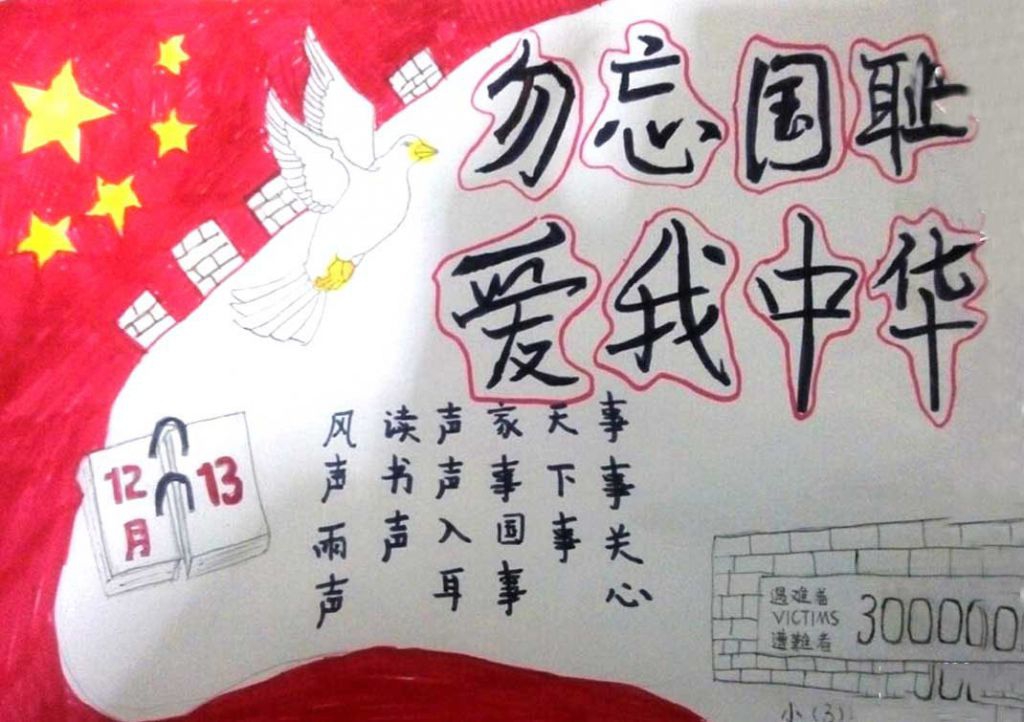 勿忘国耻
爱我中华
12
月
13
风声雨声
读书声
声声入耳
家事国事
天下事
事事关心
遇难者
VICTIMS
遭難者
300000
小(3)